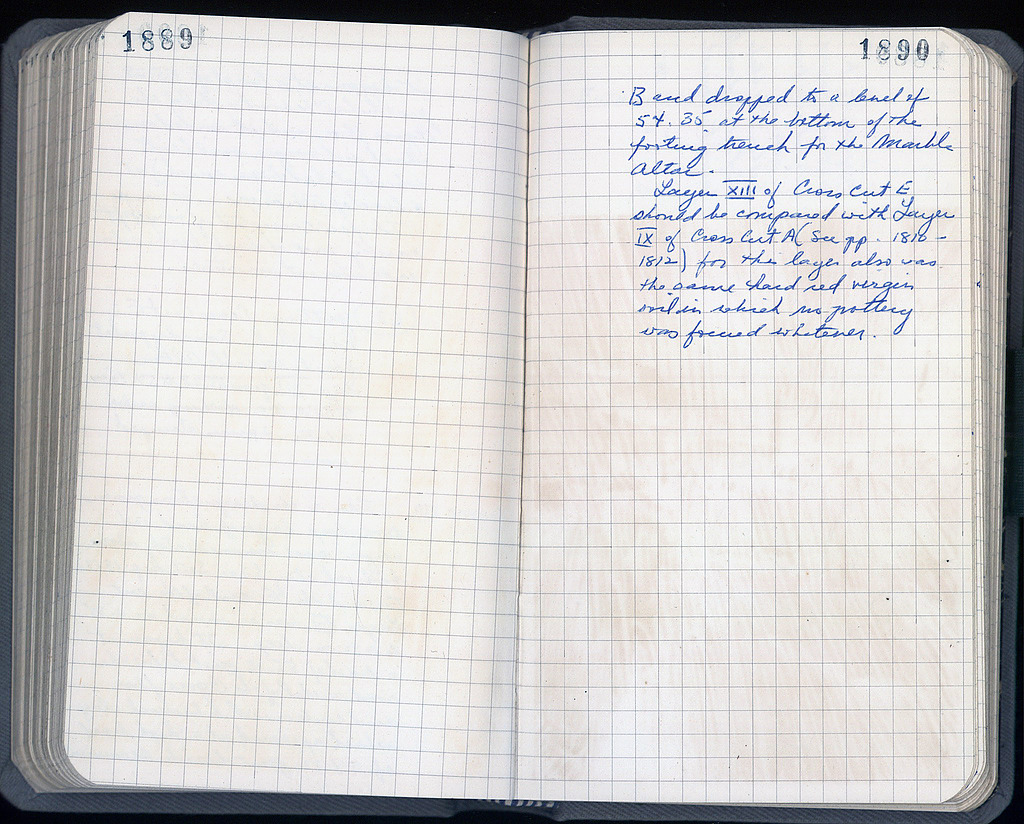 1889
1890
B and dropped to a level of
54.35 at the bottom of the
footing trench for the Marble
Altar.
Layer XIII of Cross Cut E
should be compared with Layer
IX of Cross Cut A (See pp. 1810-
1812) for this layer also was
the same hard red virgin
soil in which no pottery
was found whatever.